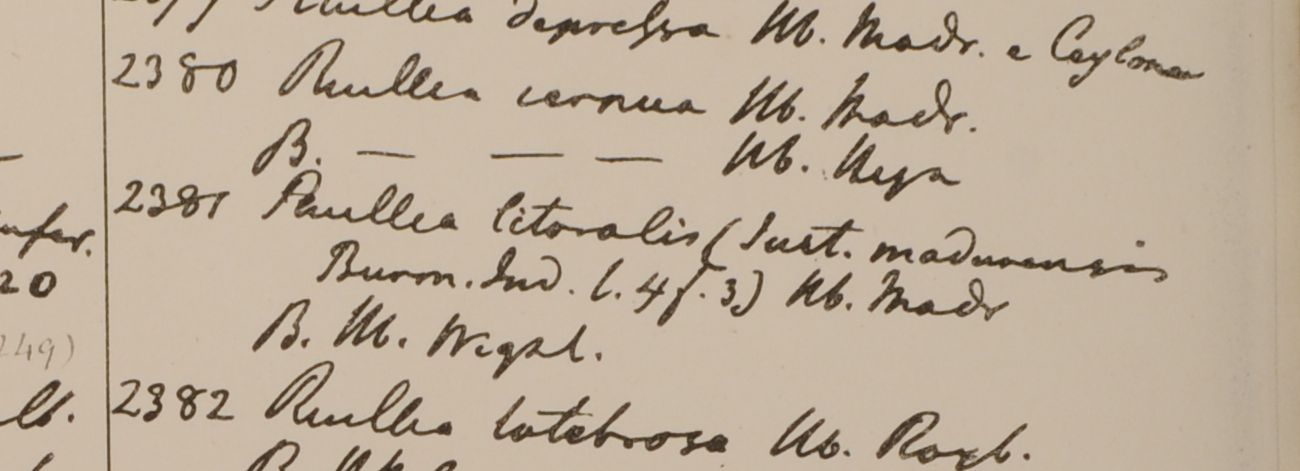 Ruellea depressa Hb. Madr. e Ceylona
2380 Ruellea cernua Hb. Madr.
B. — — — Hb. Heyn
2381 Ruellea litoralis (Just. madurensis
Burm. Ind. t. 4 f. 3) Hb. Madr
B. Hb. Wight.
2382 Ruellea latebrosa Hb. Roxb.
B. Hb.
20
249)